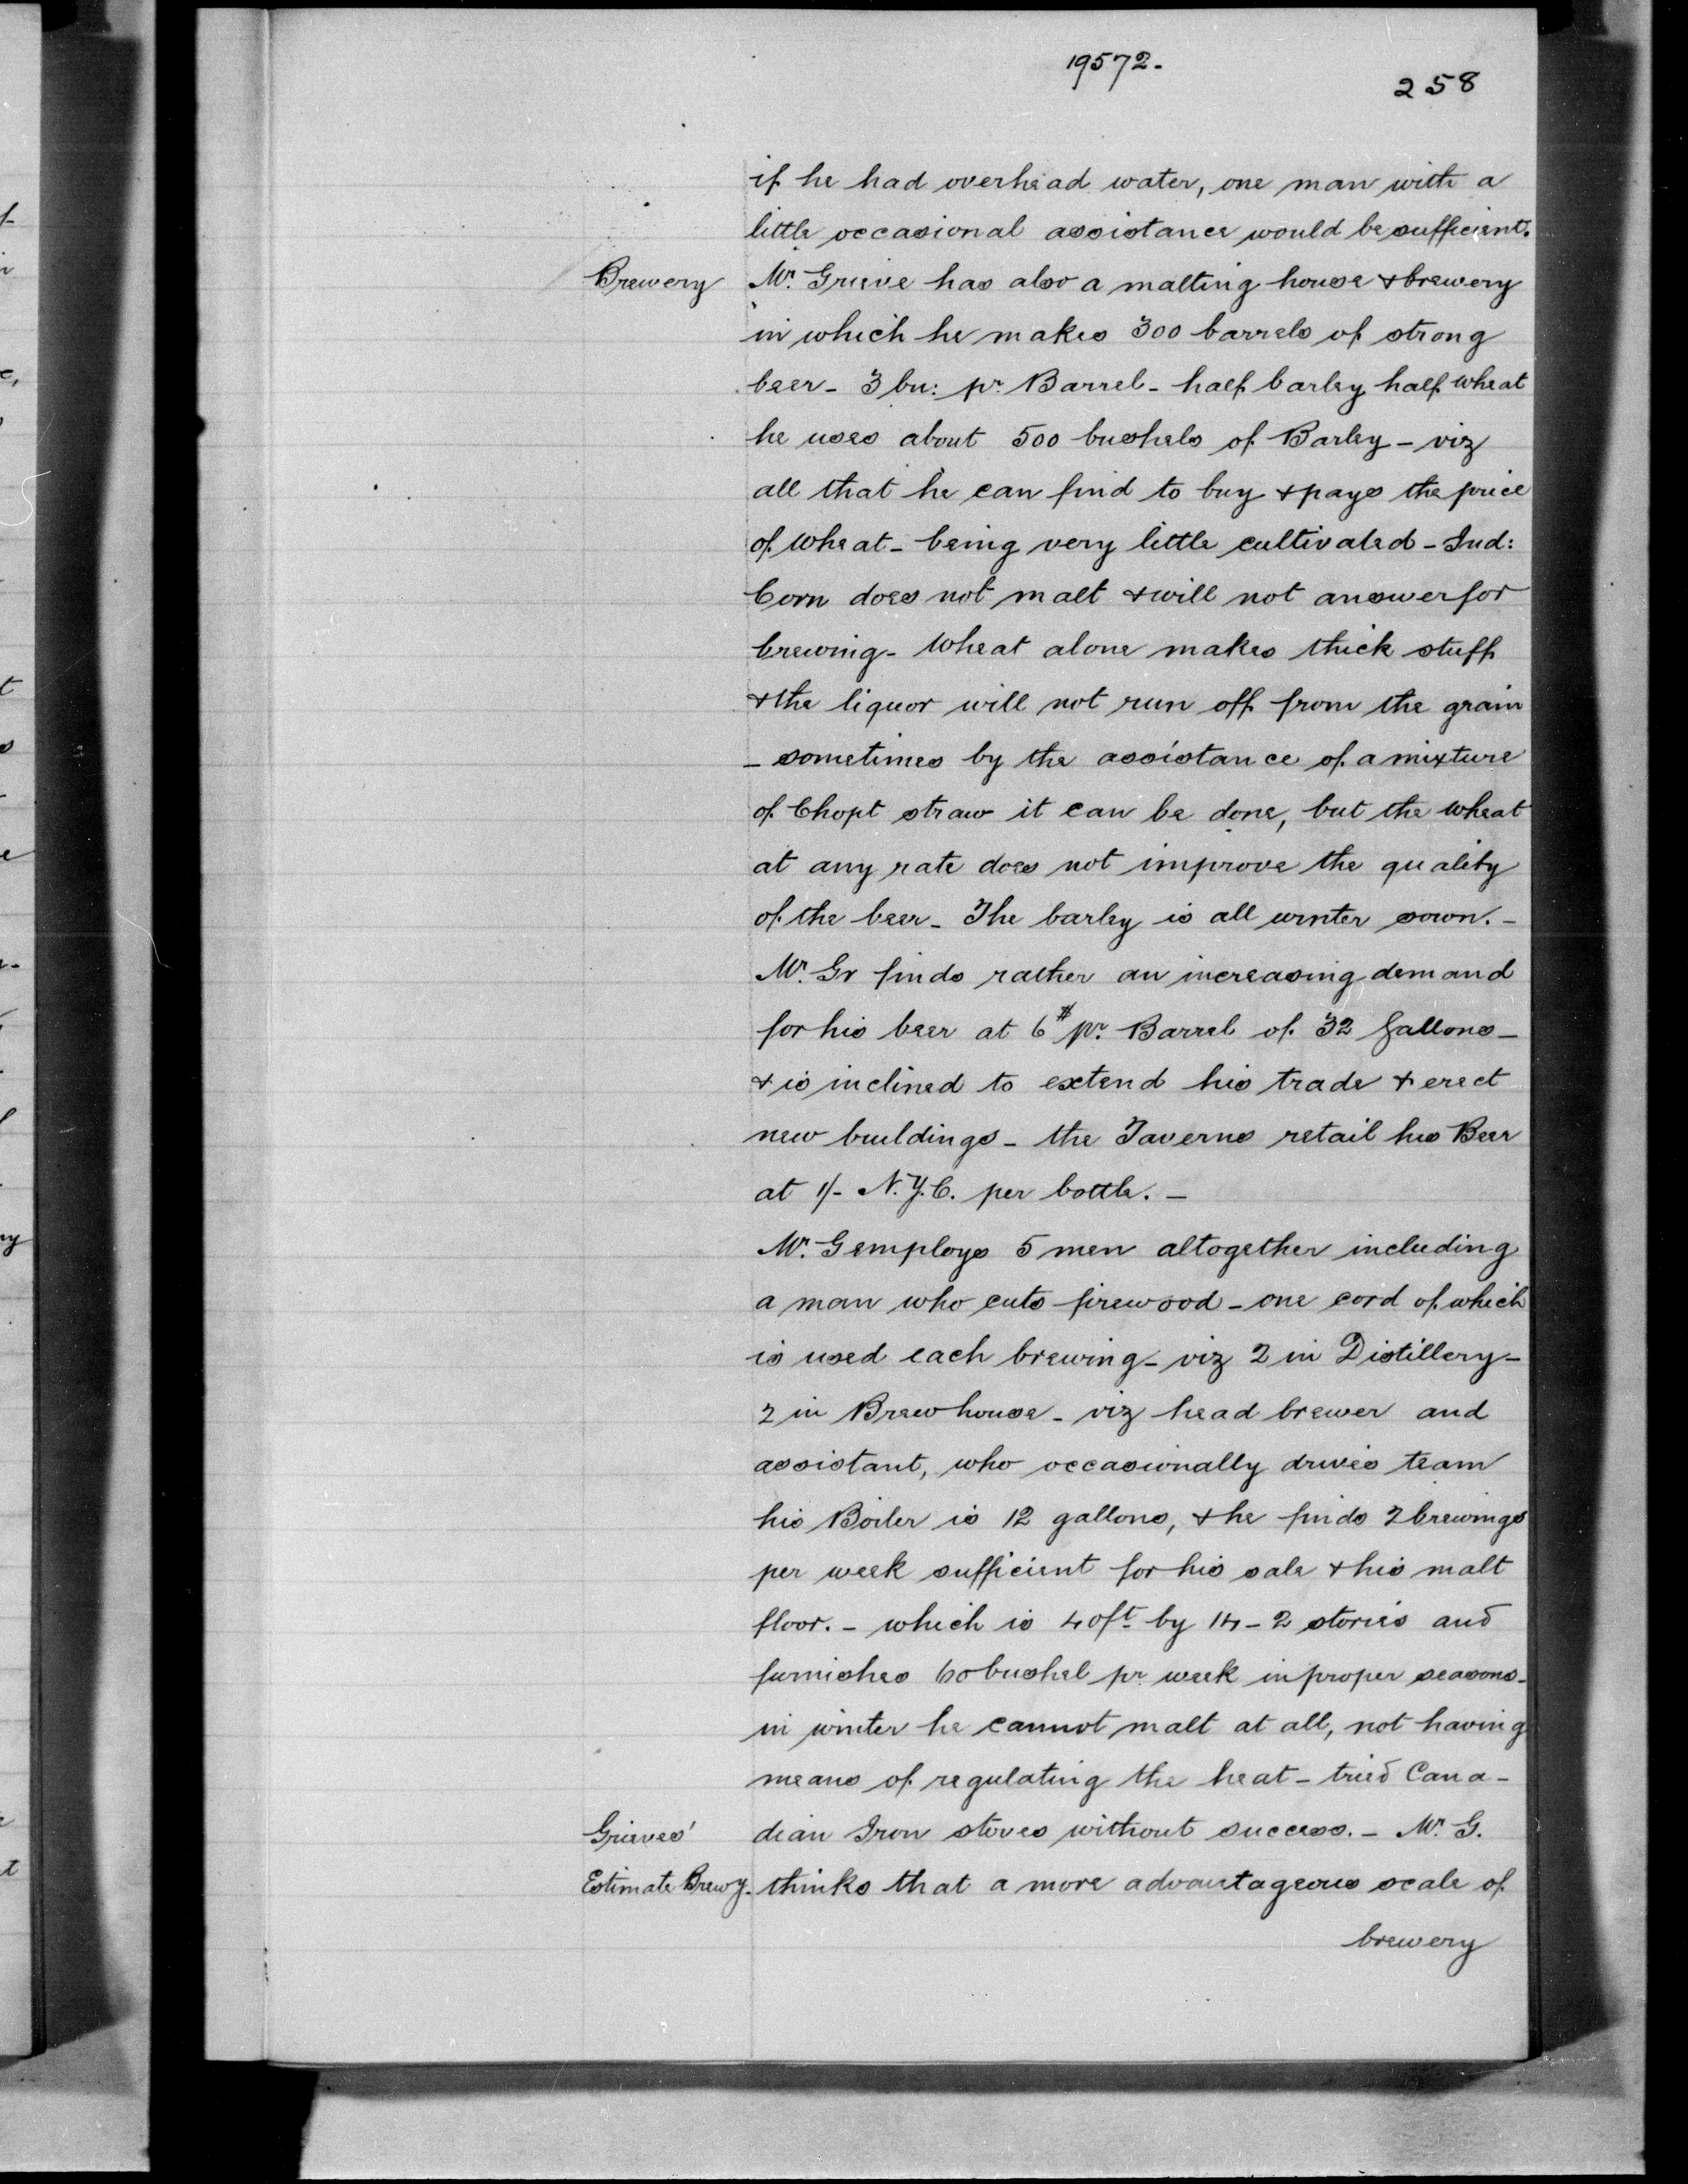 19572.
258
if he had overhead water, one man with a
little occasional assistance would be sufficient.
Brewery
Mr. Grieve has also a malting house & brewery
in which he makes 300 barrels of strong
beer - 3 bu: pr. Barrel - half barley half wheat
he uses about 500 bushels of Barley - viz
all that he can find to buy & pays the price
of wheat - being very little cultivated - Ind:
Corn does not malt & will not answer for
brewing - Wheat alone makes thick stuff
& the liquor will not run off from the grain
- sometimes by the assistance of a mixture
of Chopt straw it can be done, but the wheat
at any rate does not improve the quality
of the beer - The barley is all winter sown. -
Mr. Gr finds rather an increasing demand
for his beer at 6$ pr. Barrel of 32 Gallons -
& is inclined to extend his trade & erect
new buildings - the Taverns retail his Beer
at 1/- N.Y.C. per bottle. -
Mr. G employs 5 men altogether including
a man who cuts firewood - one cord of which
is used each brewing - viz 2 in Distillery -
2 in Brewhouse - viz head brewer and
assistant, who occasionally drives team
his Boiler is 12 gallons, & he finds 2 brewings
per week sufficient for his sale & his malt
floor. - which is 40 ft by 14 - 2 stories and
furnishes 60 bushel pr. week in proper seasons -
in winter he cannot malt at all, not having
means of regulating the heat - tried Cana-
Grieves'
dian Iron stoves without success. - Mr. G.
Estimate Brewy.
thinks that a more advantageous scale of
brewery